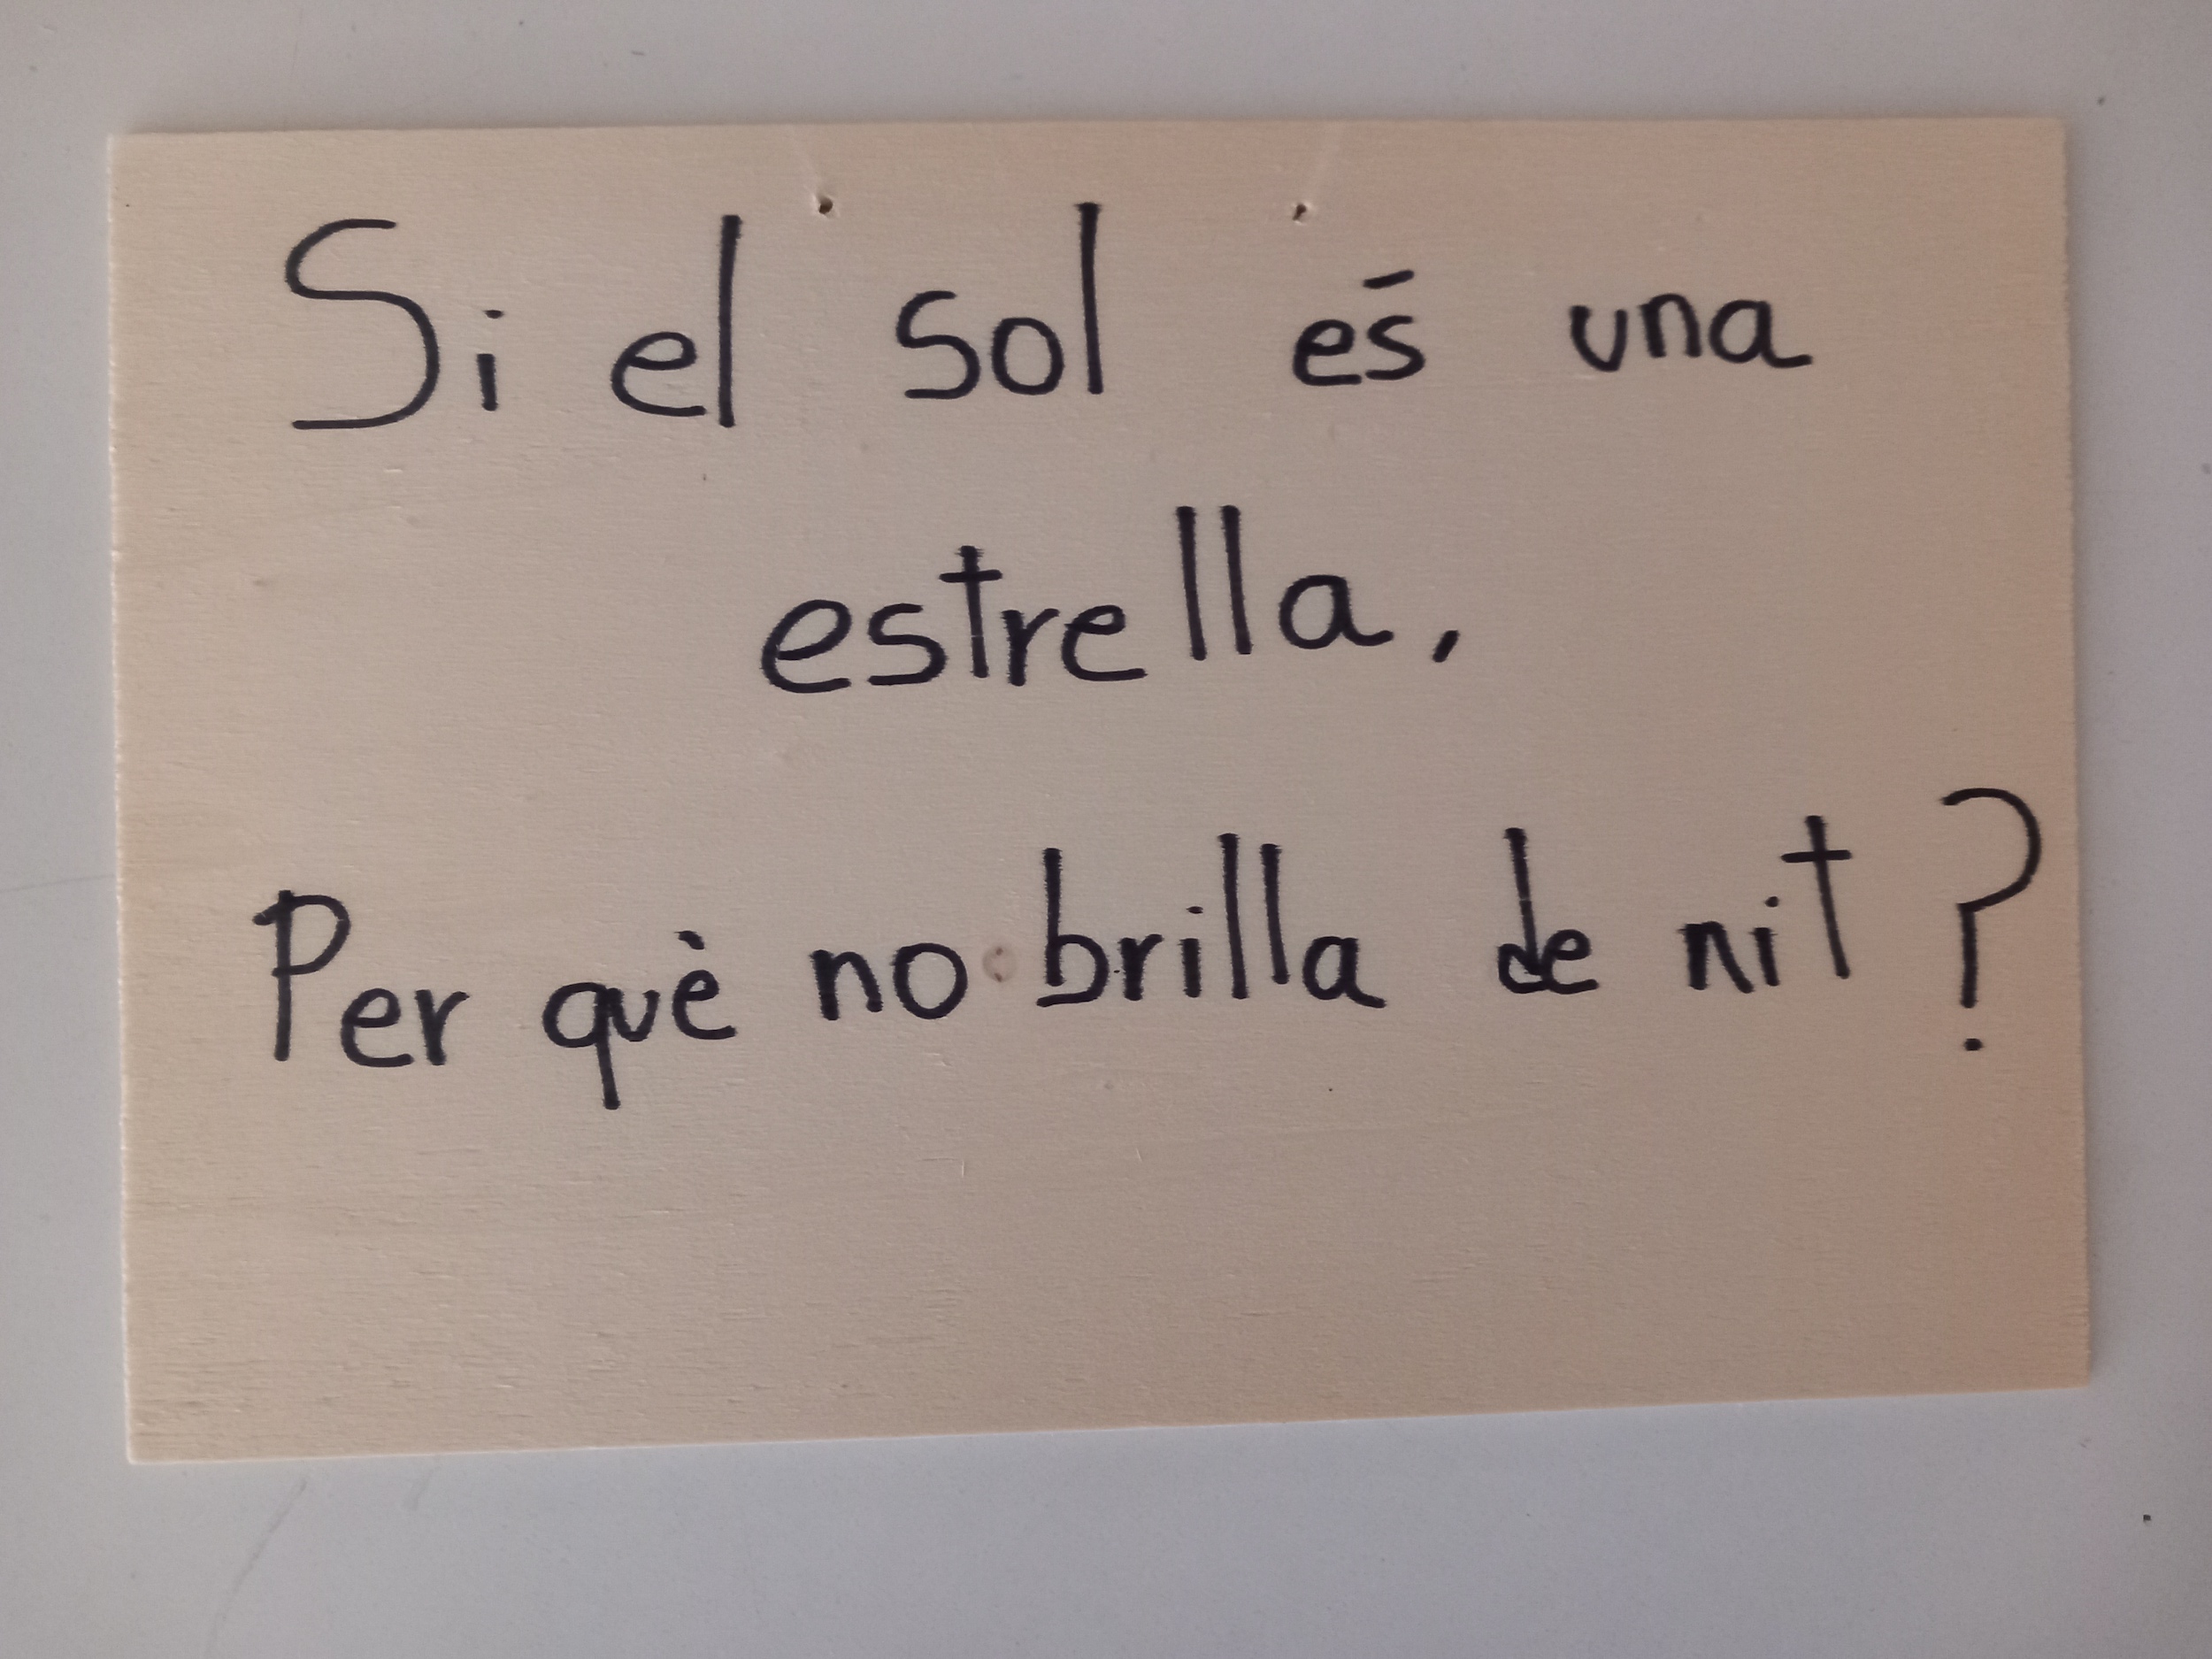 Si el sol és una
estrella,
Per què no brilla de nit?